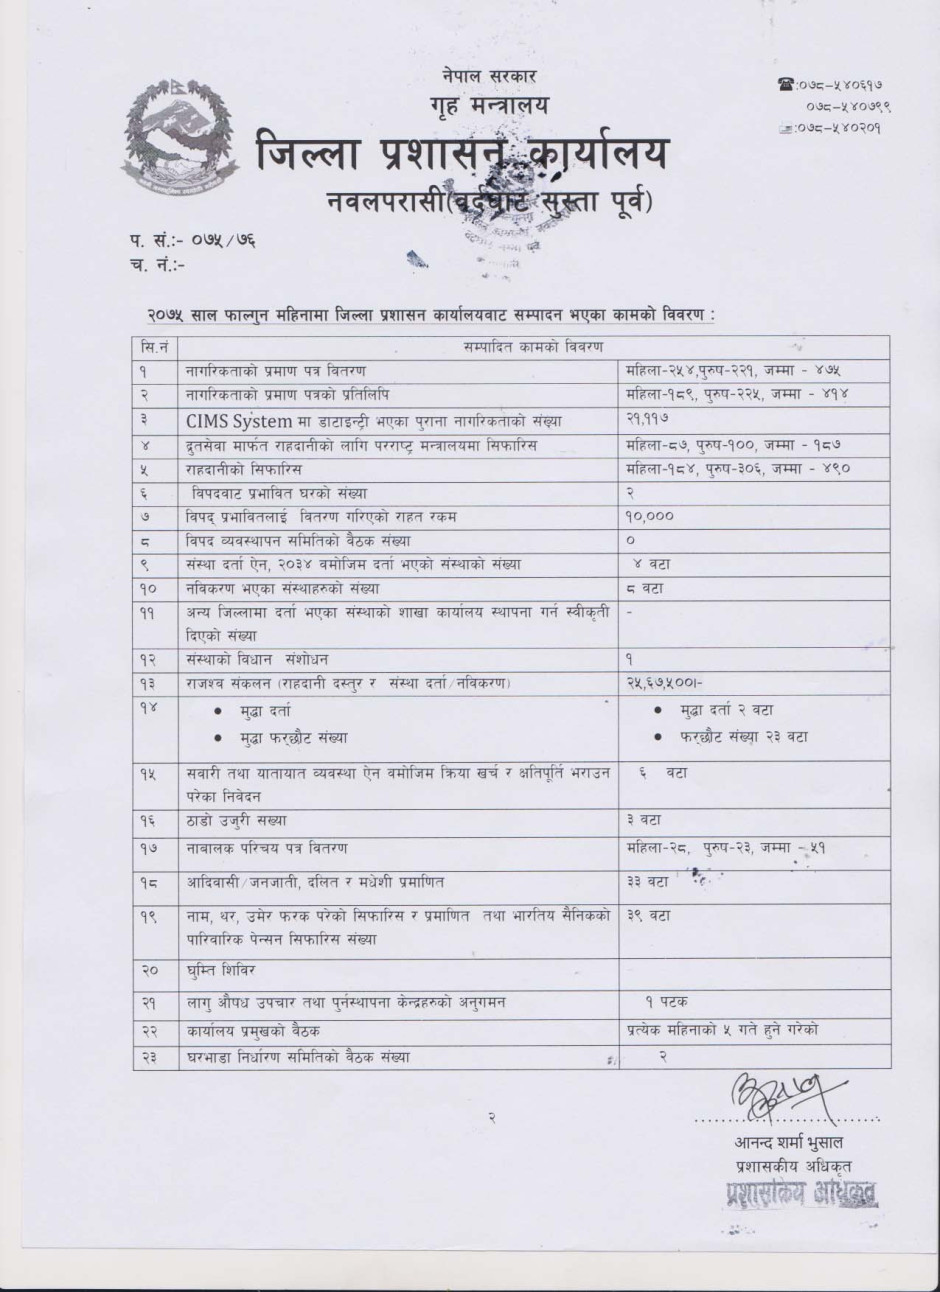 नेपाल सरकार
गृह मन्त्रालय
जिल्ला प्रशासन कार्यालय
नवलपरासी(वर्दघाट सुस्ता पूर्व)
☎:०७८–५४०६१७
०७८–५४०७९९
:०७८–५४०२०१
प. सं.:- ०७५/७६
च. नं.:-
२०७५ साल फाल्गुन महिनामा जिल्ला प्रशासन कार्यालयवाट सम्पादन भएका कामको विवरण :
सि.नं सम्पादित कामको विवरण
१ नागरिकताको प्रमाण पत्र वितरण महिला-२५४,पुरुष-२२१, जम्मा - ४७५
२ नागरिकताको प्रमाण पत्रको प्रतिलिपि महिला-१८९, पुरुष-२२५, जम्मा - ४१४
३ CIMS System मा डाटाइन्ट्री भएका पुराना नागरिकताको संख्या २१,११७
४ द्रुतसेवा मार्फत राहदानीको लागि परराष्ट्र मन्त्रालयमा सिफारिस महिला-८७, पुरुष-१००, जम्मा - १८७
५ राहदानीको सिफारिस महिला-१८४, पुरुष-३०६, जम्मा - ४९०
६ विपदवाट प्रभावित घरको संख्या २
७ विपद् प्रभावितलाई वितरण गरिएको राहत रकम १०,०००
८ विपद व्यवस्थापन समितिको वैठक संख्या ०
९ संस्था दर्ता ऐन, २०३४ वमोजिम दर्ता भएको संस्थाको संख्या ४ वटा
१० नविकरण भएका संस्थाहरुको संख्या ८ वटा
११ अन्य जिल्लामा दर्ता भएका संस्थाको शाखा कार्यालय स्थापना गर्न स्वीकृती -
दिएको संख्या
१२ संस्थाको विधान संशोधन १
१३ राजश्व संकलन (राहदानी दस्तुर र संस्था दर्ता/नविकरण) २५,६७,५००।-
१४ • मुद्धा दर्ता • मुद्धा दर्ता २ वटा
• मुद्धा फर्‍छौट संख्या • फर्‍छौट संख्या २३ वटा
१५ सवारी तथा यातायात व्यवस्था ऐन वमोजिम क्रिया खर्च र क्षतिपूर्ति भराउन ६ वटा
परेका निवेदन
१६ ठाडो उजुरी सख्या ३ वटा
१७ नाबालक परिचय पत्र वितरण महिला-२८, पुरुष-२३, जम्मा - ५१
१८ आदिवासी/जनजाती, दलित र मधेशी प्रमाणित ३३ वटा
१९ नाम, थर, उमेर फरक परेको सिफारिस र प्रमाणित तथा भारतिय सैनिकको ३९ वटा
पारिवारिक पेन्सन सिफारिस संख्या
२० घुम्ति शिविर
२१ लागु औषध उपचार तथा पुर्नस्थापना केन्द्रहरुको अनुगमन १ पटक
२२ कार्यालय प्रमुखको वैठक प्रत्येक महिनाको ५ गते हुने गरेको
२३ घरभाडा निर्धारण समितिको वैठक संख्या २
२
आनन्द शर्मा भुसाल
प्रशासकीय अधिकृत
प्रशासकिय अधिकृत